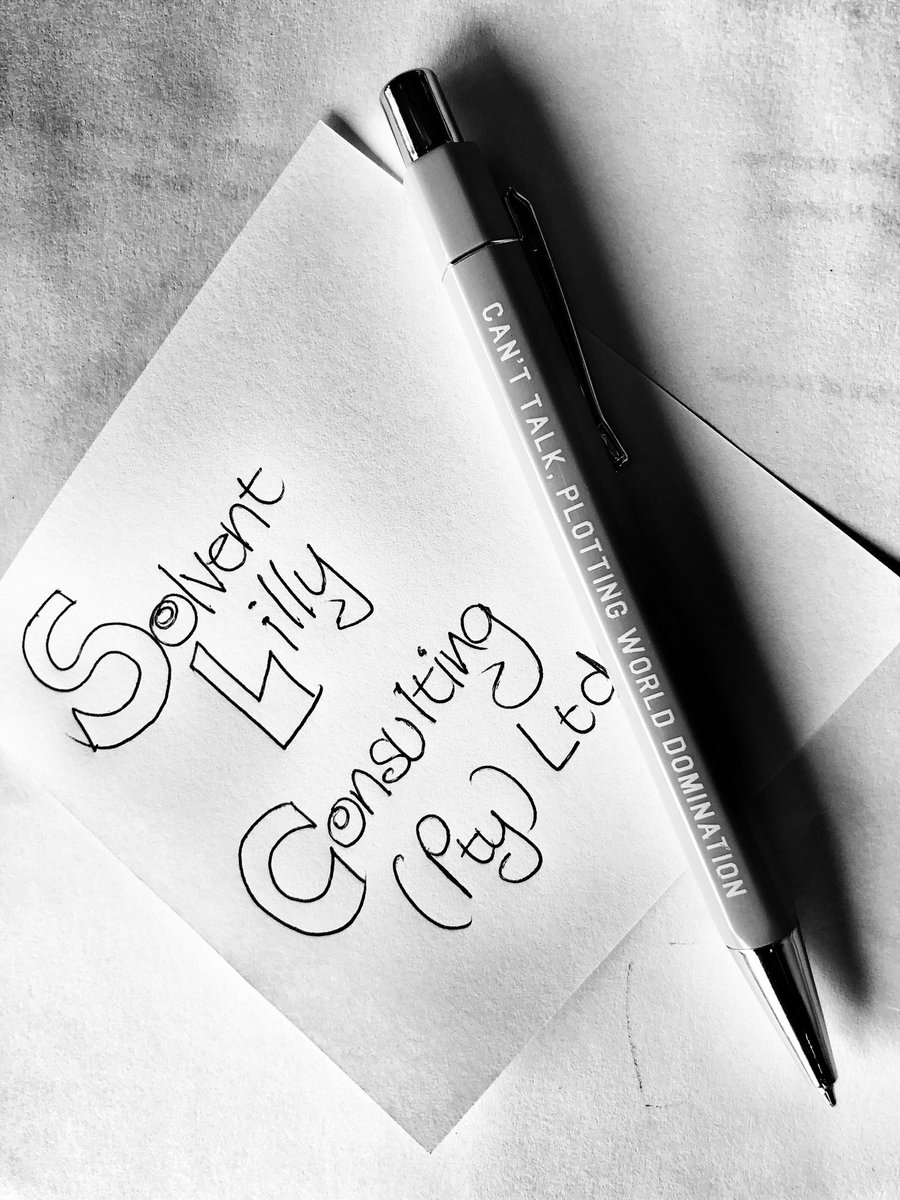 Solvent
Lilly
Consulting
(Pty) Ltd
CAN'T TALK, PLOTTING WORLD DOMINATION